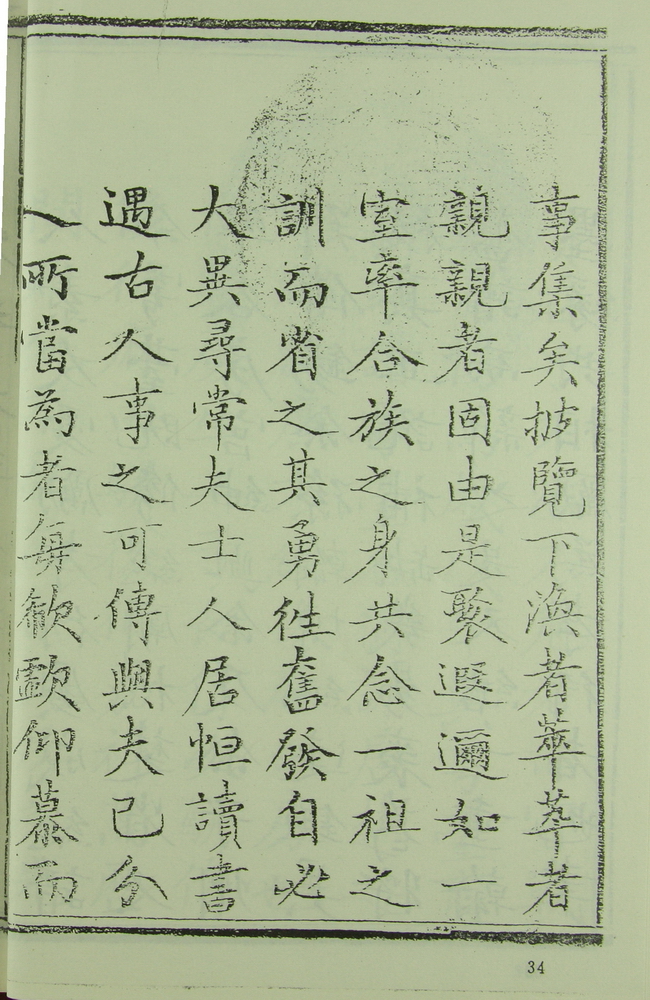 事集矣披覽下渙者萃萃者
親親者固由是聚遐邇如一
室率合族之身共念一祖之
訓而省之其勇徃奮發自必
大異尋常夫士人居恒讀書
遇古人事之可傳與夫己分
人所當為者每欷歔仰慕而
34